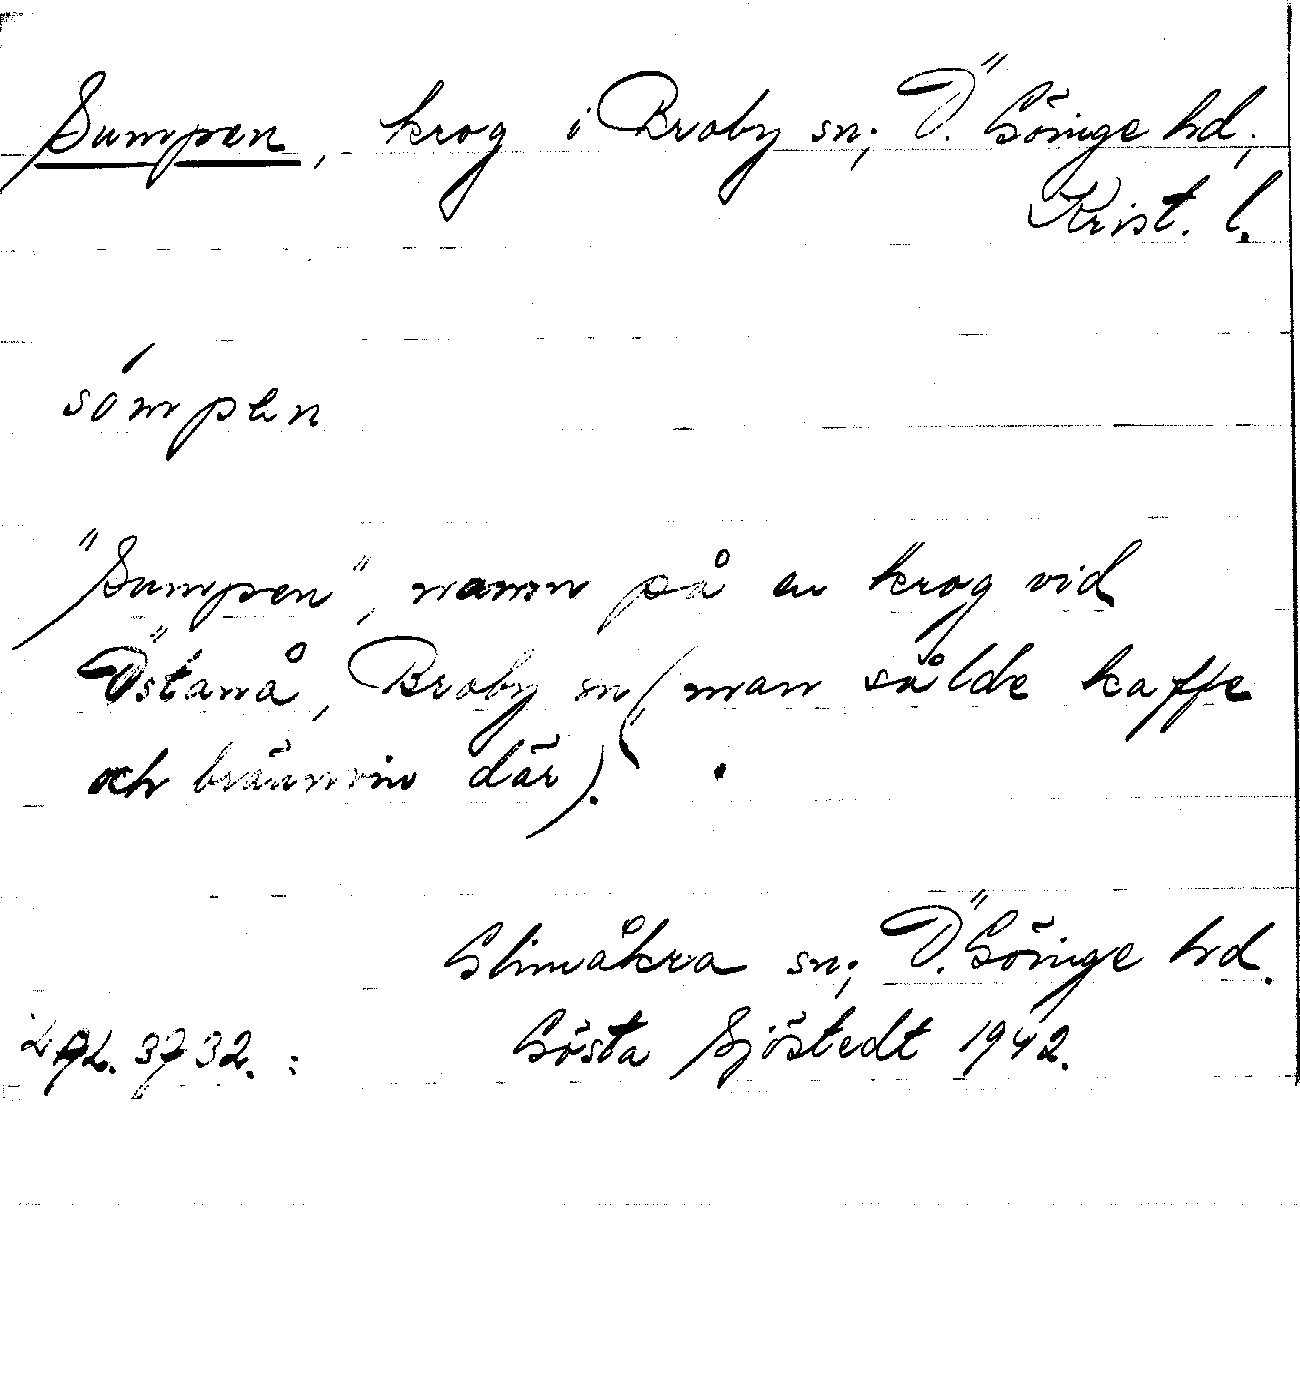 Sumpen, krog i Broby sn; Ö. Göinge hd,
Krist. l.
sómpen
"Sumpen", namn på en krog vid
Östanå, Broby sn (man sålde kaffe
och brännvin där).
Glimåkra sn; Ö. Göinge hd.
3732. Gösta Sjöstedt 1942.